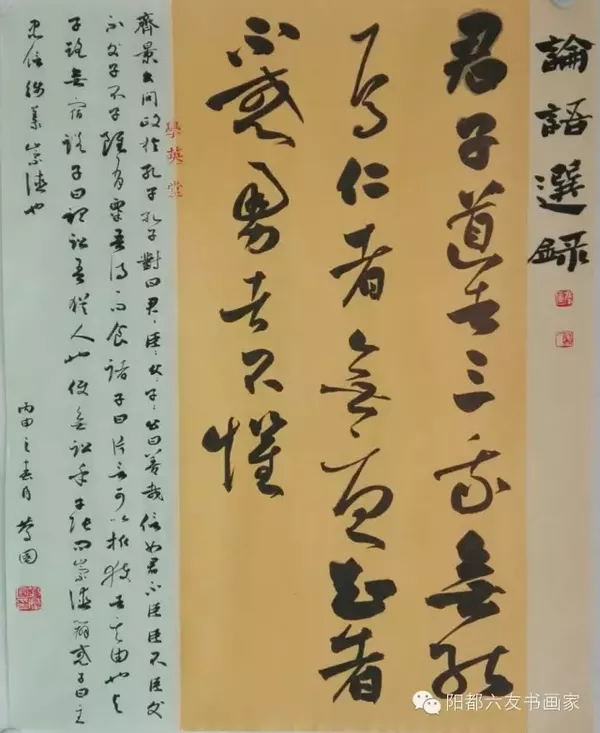 論語選録
君子道者三我無能
焉仁者無憂知者
不惑勇者不懼
學英堂
齊景公問政於孔子孔子對曰君々臣々父々子々公曰善哉信如君不臣臣不臣父
不父子不子雖有粟吾得而食諸子曰片言可以折獄者其由也與
子路無宿諾子曰聽訟吾猶人也使無訟乎子張問崇德辨惑子曰主
忠信徙義崇德也
丙申之春月國
阳都六友书画家